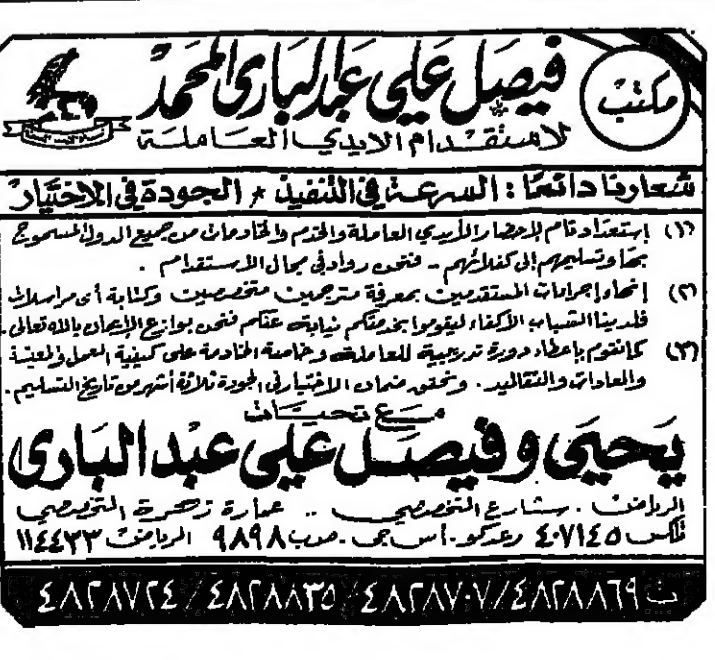 مكتب
فيصل علي عبدالباري المحمد
لاستقدام الايدي العاملة
شعارنا دائمًا : السرعة في التنفيذ * الجودة في الاختيار
(١) إستعداد تام لإحضار الأيدي العاملة والخدم والخادمات من جميع الدول المسموح
بها وتسليمهم إلى كفلائهم - فنحن رواد في مجال الاستقدام .
(٢) إنهاء إجراءات المستقدمين بمعرفة مترجمين متخصصين وكتابة أى مراسلات
فلدينا الشباب الأكفاء ليقوموا بخدمتكم نيابة عنكم فنحن بوازع الإيمان بالله تعالى .
(٣) كما نقوم بإعطاء دورة تدريبية للعاملة وخاصة الخادمة على كيفية العمل والمعيشة
والعادات والتقاليد . ونحقق ضمان الاختيار في الجودة ثلاثة أشهر من تاريخ التسليم .
مع تحيات
يحيى وفيصل علي عبدالباري
الرياض . شارع التخصصي .. عمارة زهرة التخصصي
تلكس ٤٠٧١٤٥ رعدكو . أس جى . ص ب ٩٨٩٨ الرياض ١١٤٤٣٣
ت ٤٨٢٨٨٦٩ / ٤٨٢٨٧٠٧ / ٤٨٢٨٨٣٥ / ٤٨٢٨٧٢٤